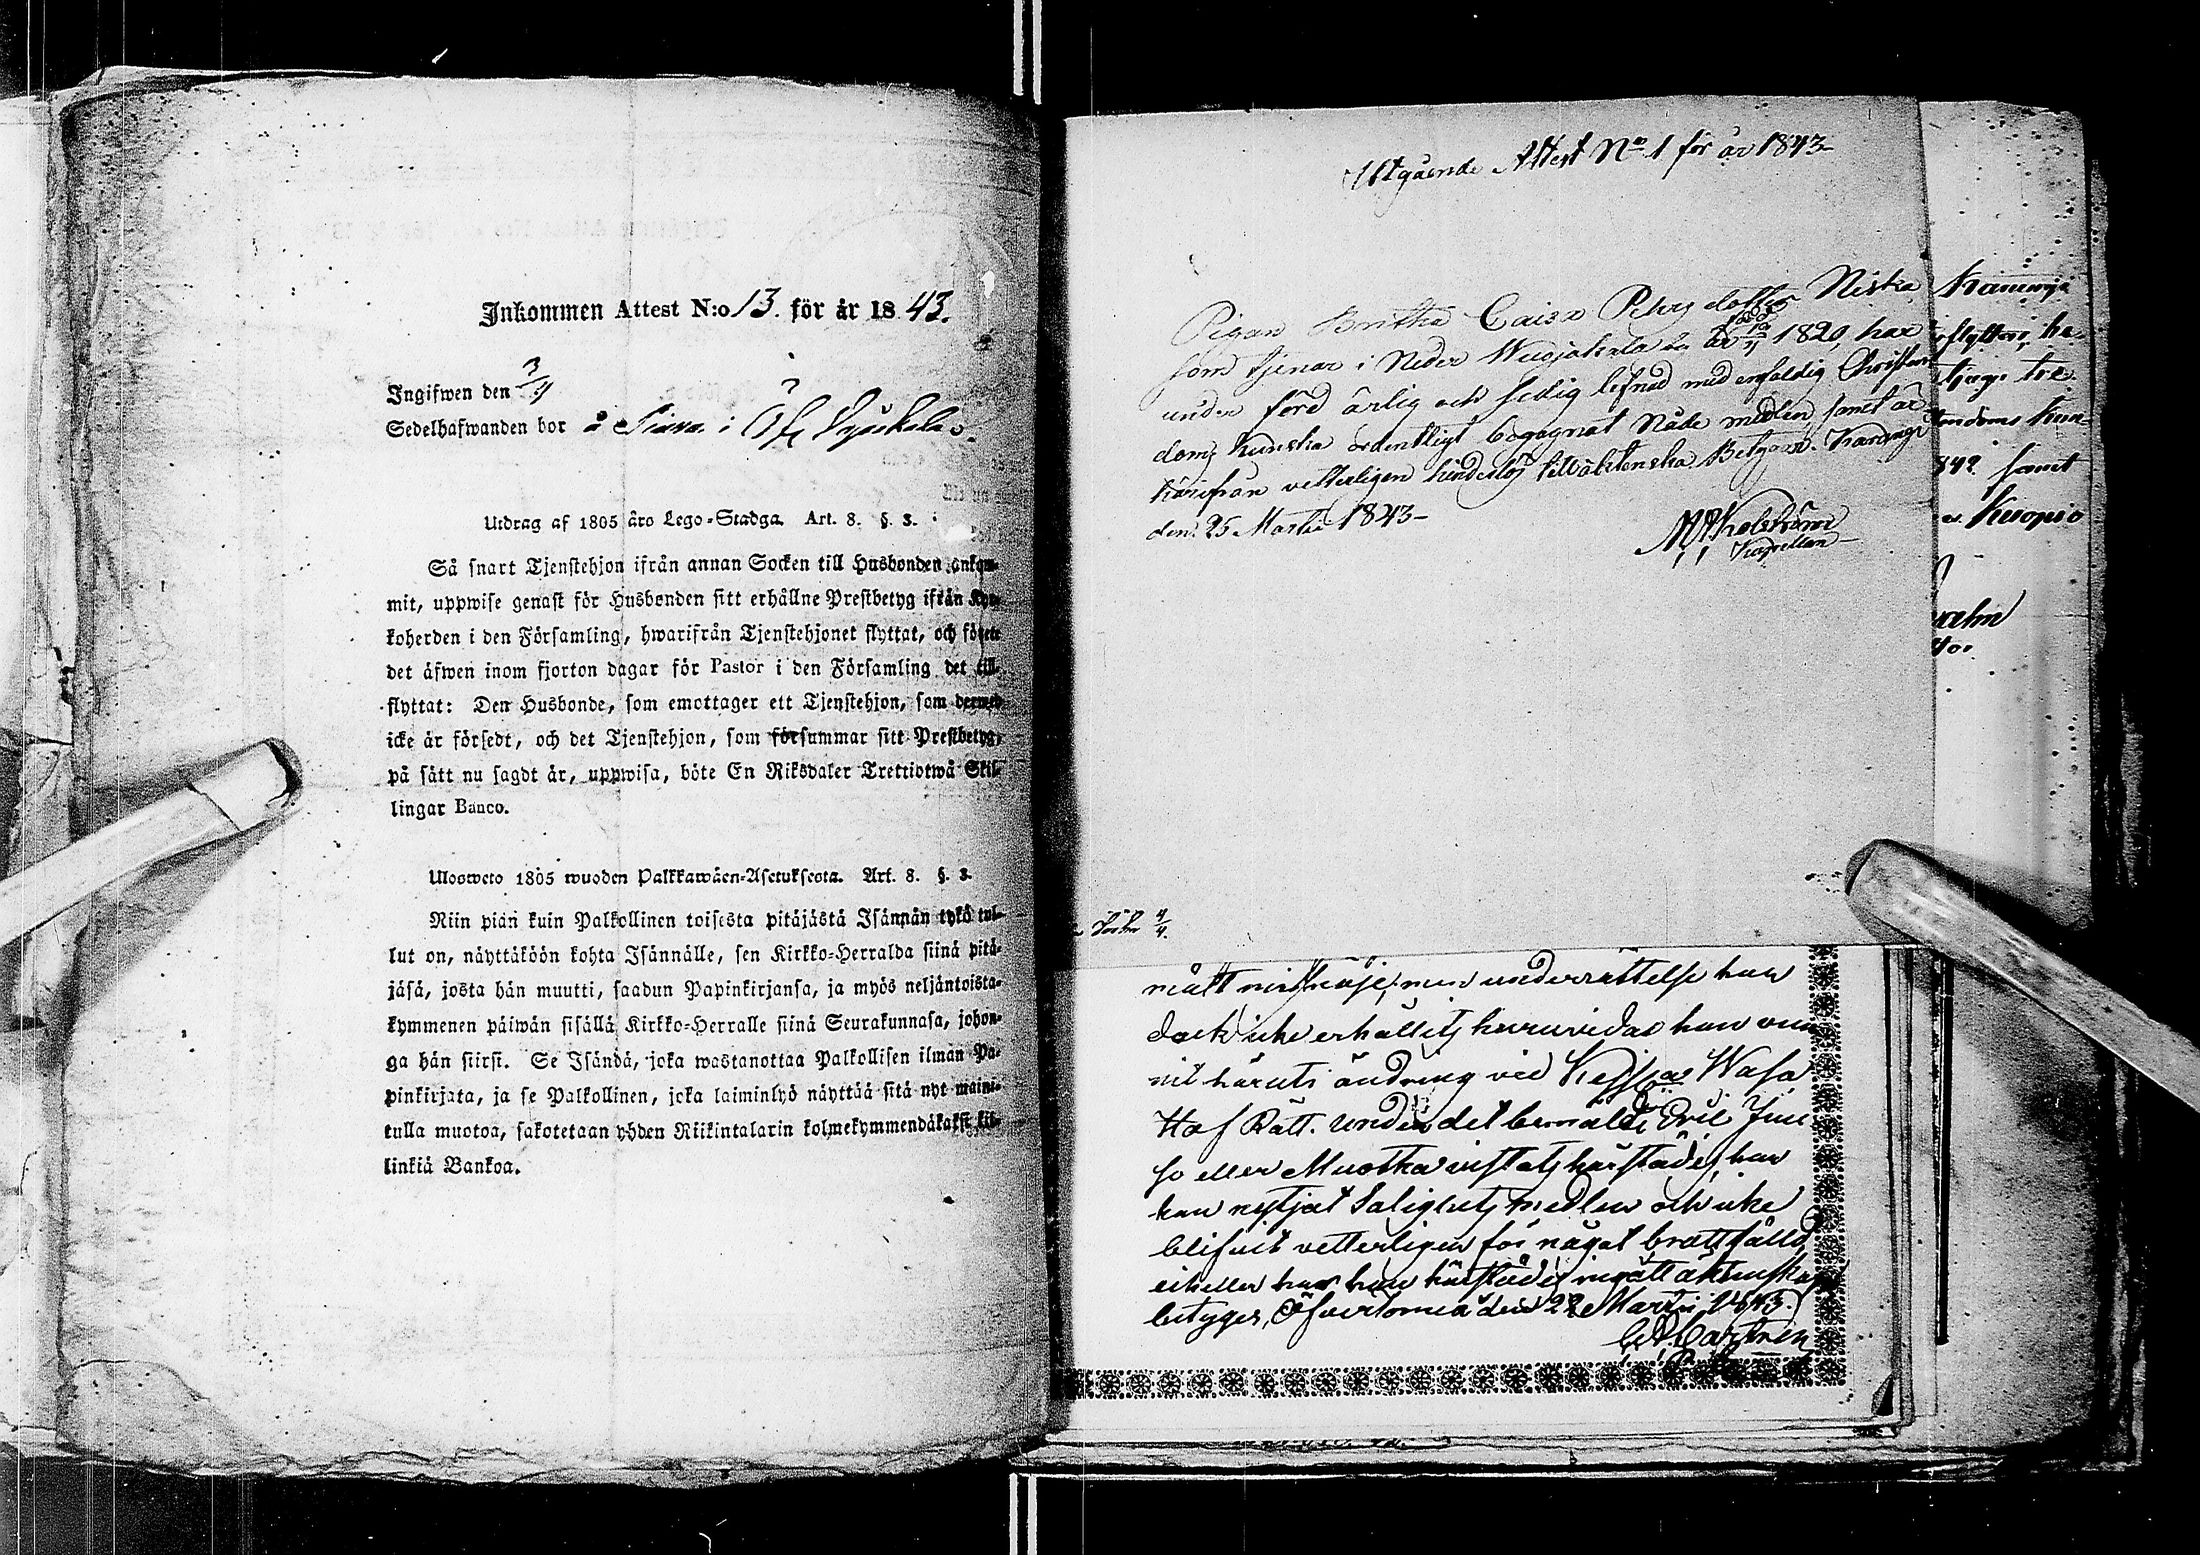 Inkommen Attest N:o 13. för år 1843.
Ingifwen den 3/4
Sedelhafwanden bor å i Öfr
Utdrag af 1805 års Lego-Stadga. Art. 8. §. 3.
Så snart Tjenstehjon ifrån annan Socken till Husbonden ankom-
mit, uppwise genast för Husbonden sitt erhållne Prestbetyg ifrån Kyr-
koherden i den Församling, hwarifrån Tjenstehjonet flyttat, och förete
det äfwen inom fjorton dagar för Pastor i den Församling det till-
flyttat: Den Husbonde, som emottager ett Tjenstehjon, som dermed
icke är försedt, och det Tjenstehjon, som försummar sitt Prestbetyg,
på sätt nu sagdt är, uppwisa, böte En Riksdaler Trettiotwå Skil-
lingar Banco.
Ulosweto 1805 wuoden Palkkawäen-Asetuksesta. Art. 8. §. 3.
Niin pian kuin Palkollinen toisesta pitäjästä Isännän tykö tul-
lut on, näyttäköön kohta Isännälle, sen Kirkko-Herralda siinä pitä-
jäsä, josta hän muutti, saadun Papinkirjansa, ja myös neljäntoista-
kymmenen päiwän sisällä Kirkko-Herralle siinä Seurakunnasa, johon-
ga hän siirsi. Se Isändä, joka wastanottaa Palkollisen ilman Pa-
pinkirjata, ja se Palkollinen, joka laiminlyö näyttää sitä nyt maini-
tulla muotoa, sakotetaan yhden Riikintalarin kolmekymmendäkaksi kil-
linkiä Bankoa.
Utgående Attest No 1 för år 1843
Pigan Britha Caisa Pehrs dotter Niska
som tjenar i Neder är född 1820, har
under förd ärlig och sedig lefnad med enfaldig Christen-
doms kunskap ordentligt begagnat Nåde medlen samt är
härifrån vetterligen hinderlös till äktenskap Betygar. Karungi
den 25 Martii 1843
Kapellan
4/4.
hans missnöje, men underrättelse har
dock icke erhållits huruvida han vun-
nit häruti ändring vid Kejserliga Wasa
Hof Rätt. Under det bemälte Eric Jun
so eller Muotka vistats härstädes, har
han nyttjat Salighets medlen och icke
blifvit vetterligen för något brott fälld,
eiheller har han härstädes ingått äktenskap
betygar, Öfvertorneå den 22 Martii 1843.
flyttar, ha-
1842 samt
Kuopio